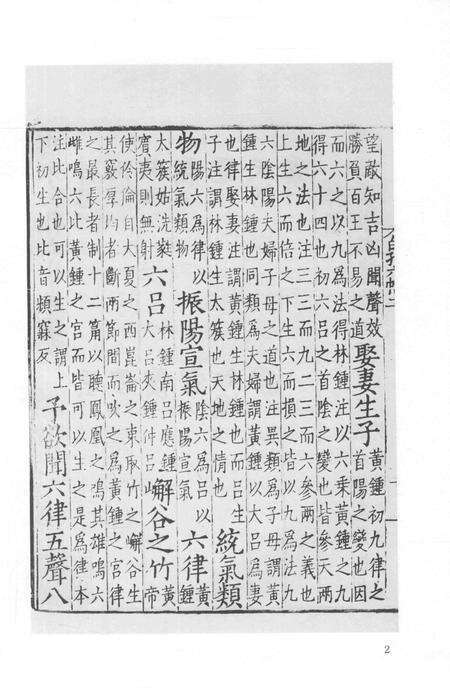 望敵知吉凶聞聲效
勝負百王不易之道
娶妻生子
黃鍾初九律之
首陽之變也因
而六之以九為法得林鍾注以六乘黃鍾之九
得六十四也初六呂之首陰之變也皆參天兩
地之法也注三三而九二三而六參兩之義也
上生六而倍之下生六而損之皆以九為法九
六陰陽夫婦子母之道也注異類為子母謂黃
鍾生林鍾也同類為夫婦謂黃鍾以大呂為妻
也律娶妻注謂黃鍾生林鍾也而呂生
子注謂林鍾生太簇也天地之情也
統氣類
物
陽六為律以
統氣類物
振陽宣氣
陰六為呂以
振陽宣氣
六律
黃
鍾
太簇姑洗蕤
賓夷則無射
六呂
林鍾南呂應鍾
大呂夾鍾仲呂
嶰谷之竹
黃
帝
使伶倫自大夏之西崑崙之東取竹之嶰谷生
其竅厚均者斷兩節間而吹之為黃鍾之宮律
之最長者制十二筩以聽鳳凰之鳴其雄鳴六
雌鳴六比黃鍾之宮而皆可以生之是為律本
注比合也可以生之謂上
下初生也比音頻寐反
予欲聞六律五聲八
2